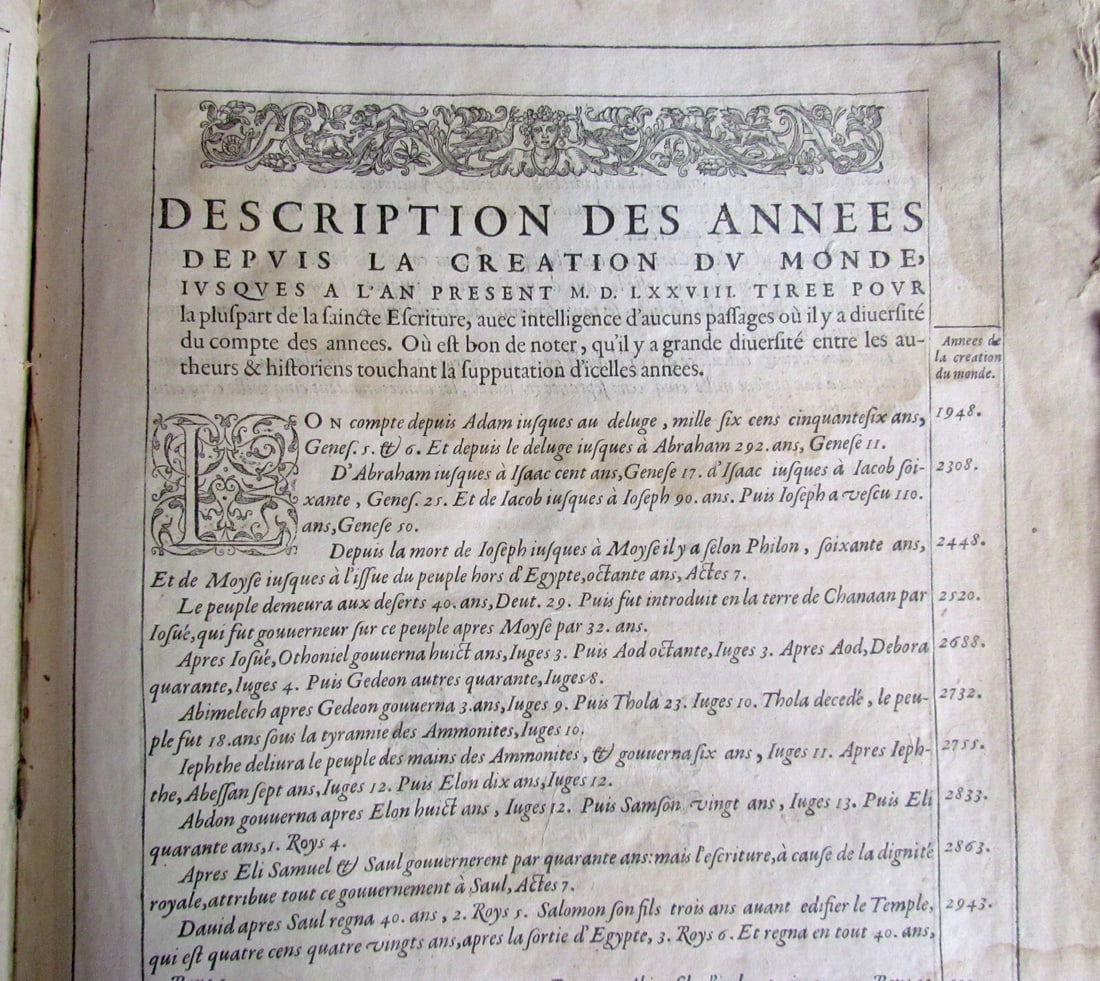 DESCRIPTION DES ANNEES
DEPVIS LA CREATION DV MONDE,
IVSQVES A L'AN PRESENT M. D. LXXVIII. TIREE POVR
la pluſpart de la ſaincte Eſcriture, auec intelligence d'aucuns paſſages où il y a diuerſité
du compte des annees. Où eſt bon de noter, qu'il y a grande diuerſité entre les au-
theurs & hiſtoriens touchant la ſupputation d'icelles annees.
Annees de
la creation
du monde.
LON compte depuis Adam iuſques au deluge, mille ſix cens cinquanteſix ans,
1948.
Geneſ. 5. & 6. Et depuis le deluge iuſques à Abraham 292. ans, Geneſe 11.
D'Abraham iuſques à Iſaac cent ans, Geneſe 17. d'Iſaac iuſques à Iacob ſoi-
2308.
xante, Geneſ. 25. Et de Iacob iuſques à Ioſeph 90. ans. Puis Ioſeph a veſcu 110.
ans, Geneſe 50.
Depuis la mort de Ioſeph iuſques à Moyſe il y a ſelon Philon, ſoixante ans,
2448.
Et de Moyſe iuſques à l'iſſue du peuple hors d'Egypte, octante ans, Actes 7.
Le peuple demeura aux deſerts 40. ans, Deut. 29. Puis fut introduit en la terre de Chanaan par
2520.
Ioſué, qui fut gouuerneur ſur ce peuple apres Moyſe par 32. ans.
Apres Ioſué, Othoniel gouuerna huict ans, Iuges 3. Puis Aod octante, Iuges 3. Apres Aod, Debora
2688.
quarante, Iuges 4. Puis Gedeon autres quarante, Iuges 8.
Abimelech apres Gedeon gouuerna 3. ans, Iuges 9. Puis Thola 23. Iuges 10. Thola decedé, le peu-
2732.
ple fut 18. ans ſous la tyrannie des Ammonites, Iuges 10.
Iephthe deliura le peuple des mains des Ammonites, & gouuerna ſix ans, Iuges 11. Apres Ieph-
2755.
the, Abeſſan ſept ans, Iuges 12. Puis Elon dix ans, Iuges 12.
Abdon gouuerna apres Elon huict ans, Iuges 12. Puis Samſon vingt ans, Iuges 13. Puis Eli
2833.
quarante ans, 1. Roys 4.
Apres Eli Samuel & Saul gouuernerent par quarante ans: mais l'eſcriture, à cauſe de la dignité
2863.
royale, attribue tout ce gouuernement à Saul, Actes 7.
Dauid apres Saul regna 40. ans, 2. Roys 5. Salomon ſon fils trois ans auant edifier le Temple,
2943.
qui eſt quatre cens quatre vingts ans, apres la ſortie d'Egypte, 3. Roys 6. Et regna en tout 40. ans,